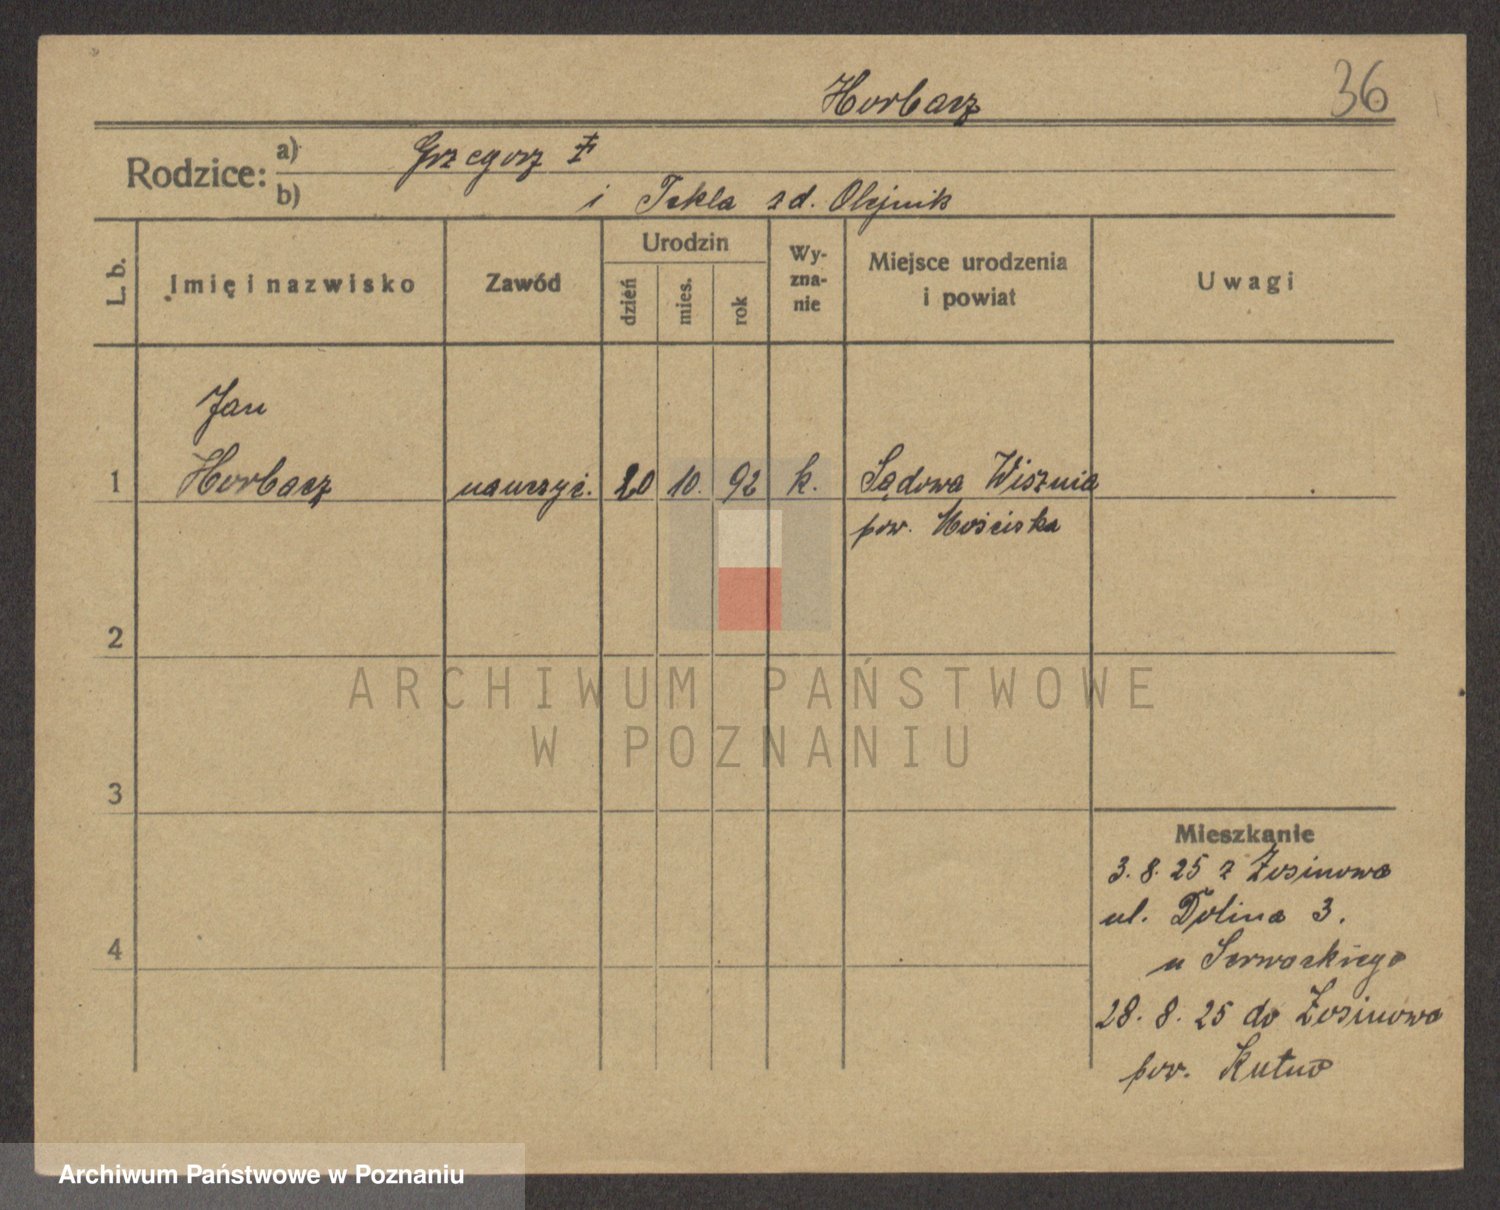 Horbacz
36
Rodzice: a) Grzegorz
b) i Tekla zd. Olejnik
L. b.
Imię i nazwisko
Zawód
Urodzin
dzień
mies.
rok
Wy-
zna-
nie
Miejsce urodzenia
i powiat
Uwagi
Jan
1 Horbacz nauczyc. 20 10. 92 k. Sądowa Wisznia
pow. Mościska
2
3
4
Mieszkanie
3. 8. 25 z Żosinowa
ul. Dolina 3.
u
28. 8. 25 do Żosinowa
pow. Kutno
ARCHIWUM PAŃSTWOWE
W POZNANIU
Archiwum Państwowe w Poznaniu